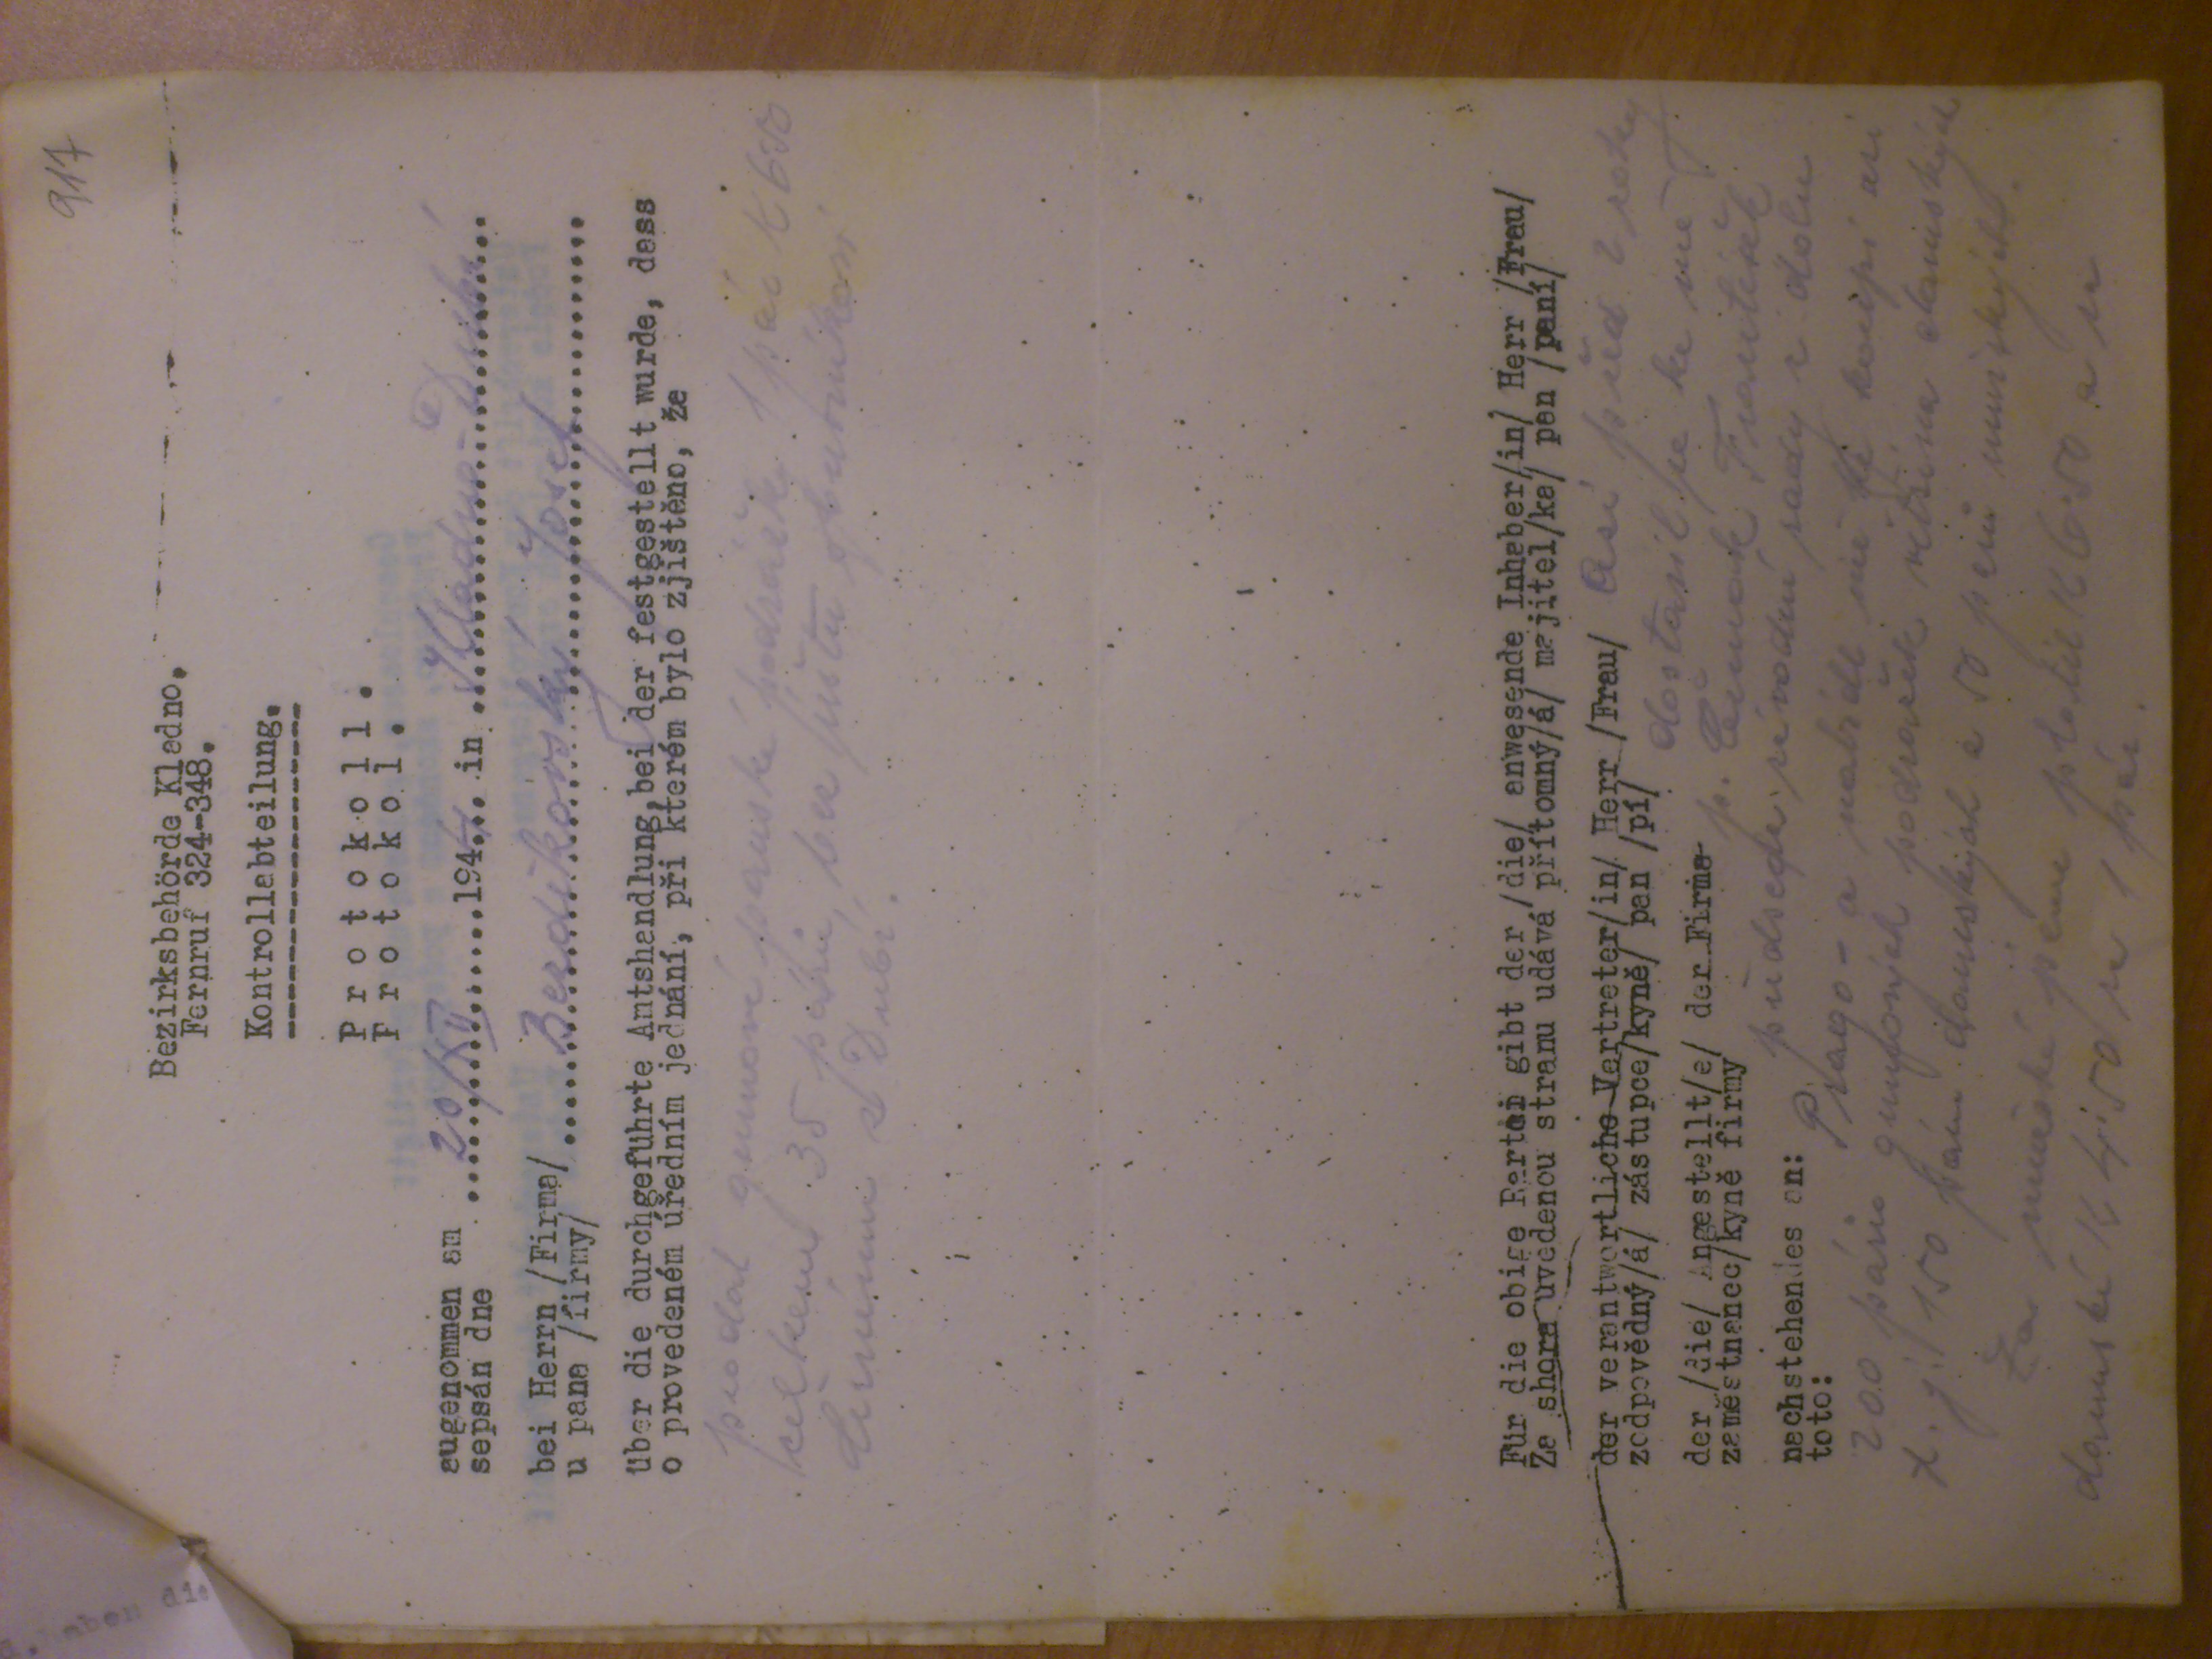 917
Bezirksbehörde Kladno.
Fernruf 324-348.
Kontrollabteilung.
Protokoll.
Protokol.
augenommen am
sepsán dne 20/XII 1944 in Kladno-Dubí
bei Herrn /Firma/
u pana /firmy/ Berdíkovský Josef
über die durchgeführte Amtshandlung,bei der festgestellt wurde, dass
o provedeném úředním jednání, při kterém bylo zjištěno, že
prodal gumové panské podrážky 1 pár K 6.50
celkem 35 párů, bez účtu obuvníkovi
Černému z Dubí.
Für die obige Partei gibt der /die/ anwesende Inhaber/in/ Herr /Frau/
Za shora uvedenou stranu udává přítomný/á/ majitel/ka/ pan /paní/
der verantwortliche Vertreter/in/ Herr /Frau/ Asi před 2 roky
zodpovědný/á/ zástupce/kyně/ pan /pí/
dostavil se ke mě
der /die/ Angestellt/e/ der Firma
zaměstnanec/kyně firmy
p. František
předseda závodní rady z dolu
nachstehendes an:
toto:
Prago - a nabídl mě ke koupi asi
200 párů gumových podrážek většina damských
t. j. 150 párů damských a 50 párů mužských.
Za mužské jsem platil K 6.50 a za
damské K 4.50 za 1 pár.